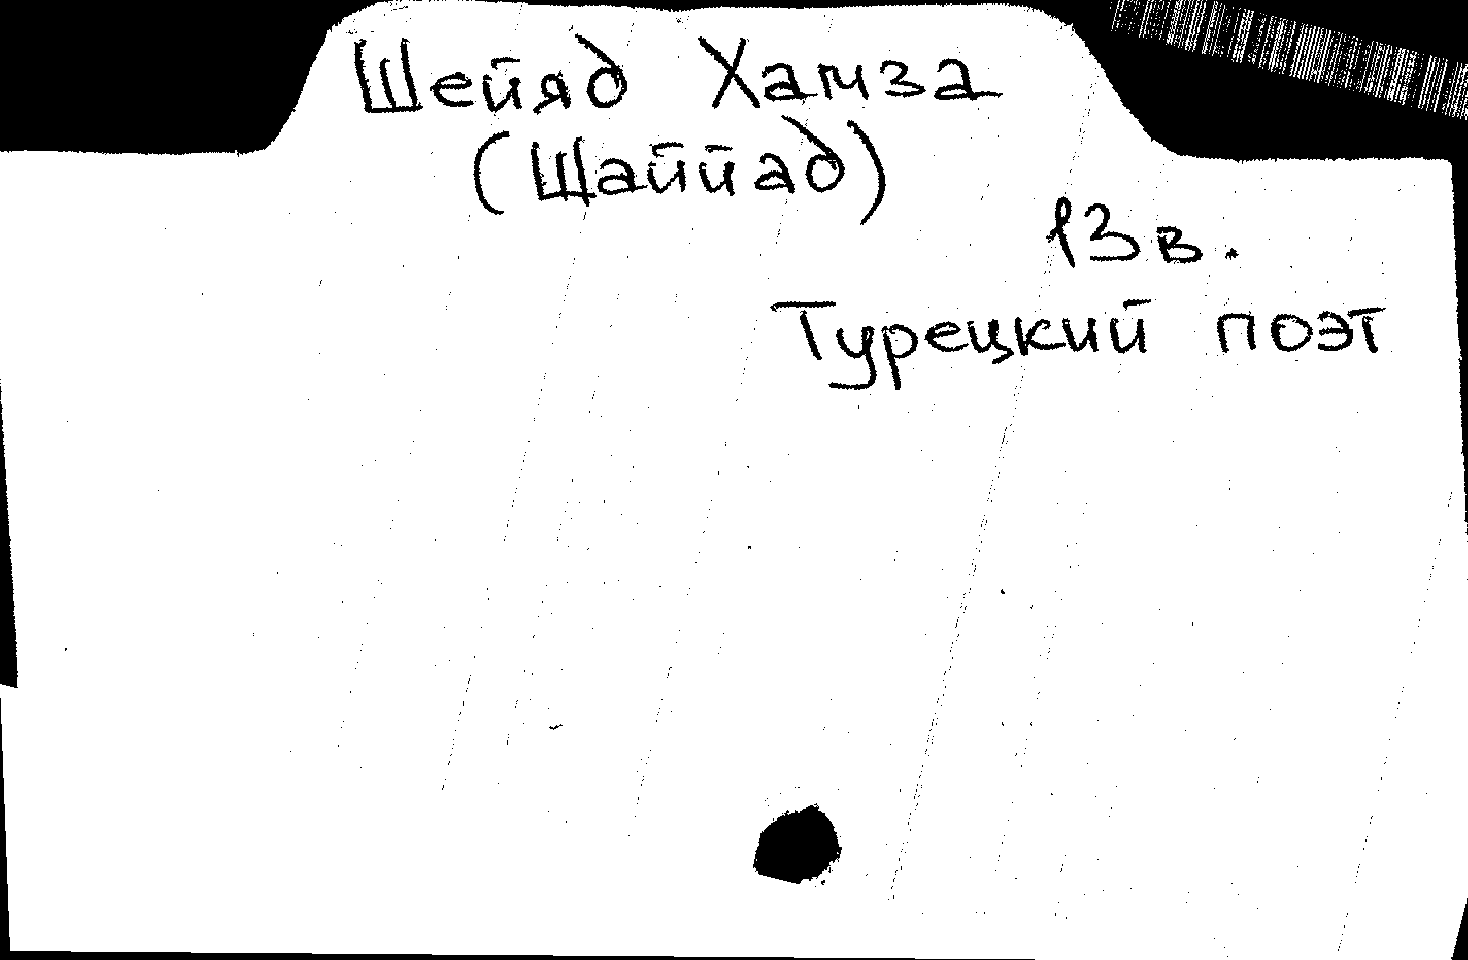 Шейяд Хамза
(Шаййад)
13 в.
Турецкий поэт